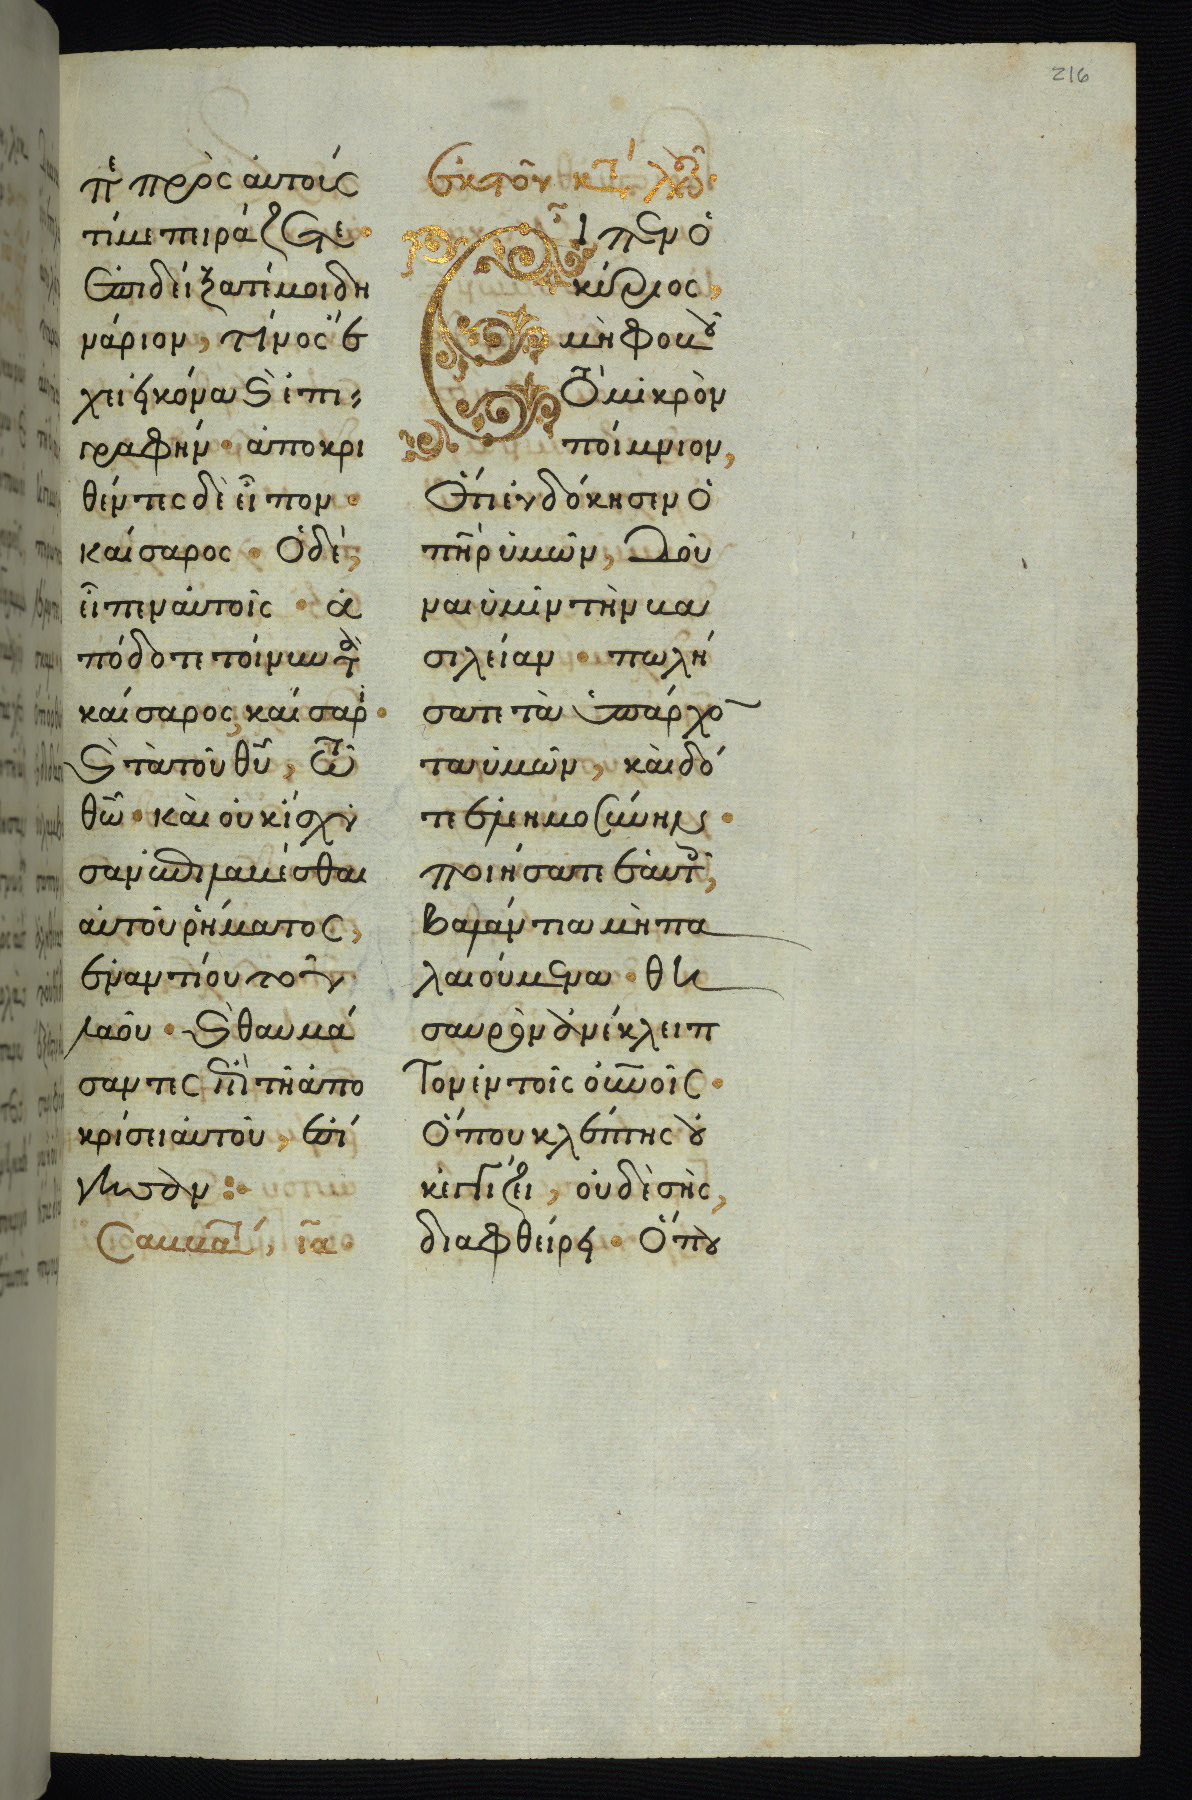 216
πε πρὸς αὐτούς
τί με πειράζετε·
ἐπιδείξατέ μοι δη
νάριον, τίνος ἔ
χει εἰκόνα καὶ ἐπι
γραφήν· ἀποκρι
θέντες δὲ εἶπον·
καίσαρος· ὁ δὲ,
εἶπεν αὐτοῖς· ἀ
πόδοτε τοίνυν τὰ
καίσαρος, καίσαρι·
καὶ τὰ τοῦ θυ, τῶ
θω· καὶ οὐκ ἴσχυ
σαν ἐπιλαβέσθαι
αὐτοῦ ῥήματος,
ἐναντίον τοῦ
λαοῦ· καὶ θαυμά
σαντες ἐπὶ τῆ ἀπο
κρίσει αὐτοῦ, ἐσί
γησαν:·
Σαββάτω, ια·
ἐκ τοῦ κατὰ λουκᾶν·
Εἶπεν ὁ
κύριος,
μὴ φοβοῦ
τὸ μικρὸν
ποίμνιον,
ὅτι εὐδόκησεν ὁ
πηρ ὑμῶν, δοῦ
ναι ὑμῖν τὴν βα
σιλείαν· πωλή
σατε τὰ ὑπάρχο
τα ὑμῶν, καὶ δό
τε ἐλεημοσύνην·
ποιήσατε ἑαυτοῖς,
βαλάντια μὴ πα
λαιούμενα· θη
σαυρὸν ἀνέκλειπ
τον ἐν τοῖς οὐνοῖς·
ὅπου κλέπτης οὐ
κ ἐγγίζει, οὐδὲ σὴς,
διαφθείρει· ὅπου